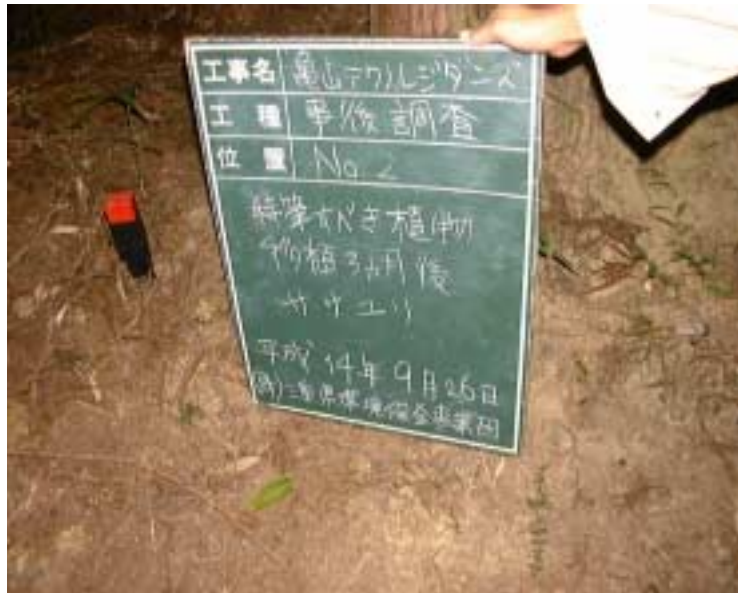 工事名 亀山テクノレジデンス
工種 事後調査
位置 No.2
特筆すべき植物
移植3ヵ月後
ササユリ
平成14年9月26日
(財)三重県環境保全事業団